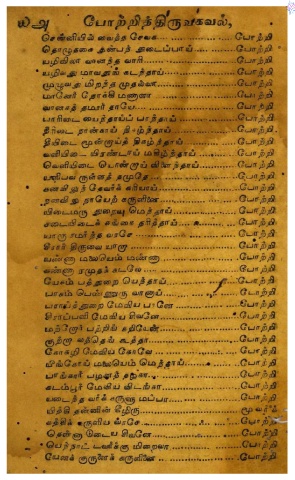 போற்றித்திருவகவல்,
சென்னியில் வைத்த சேவக போற்றி
தொழுகை துன்பந் துடைப்பாய் போற்றி
அழிவிலா ஆனந்த வாரி போற்றி
அழிவது மாவதுங் கடந்தாய் போற்றி
முழுவது மிறந்த முதல்வா போற்றி
மானேர் நோக்கி மணாளா போற்றி
வானகத் தமரர் தாயே போற்றி
பாரிடை யைந்தாய்ப் பரந்தாய் போற்றி
நீரிடை நான்காய் நிகழ்ந்தாய் போற்றி
தீயிடை மூன்றாய்த் திகழ்ந்தாய் போற்றி
வளியிடை யிரண்டாய் மகிழ்ந்தாய் போற்றி
வெளியிடை யொன்றாய் விளைந்தாய் போற்றி
அளிபவ ருள்ளத் தமுதே போற்றி
கனவிலுந் தேவர்க் கரியாய் போற்றி
நனவிலு நாயேற் கருளினை போற்றி
இடைமரு துறையு மெந்தாய் போற்றி
சடையிடைக் கங்கை தரித்தாய் போற்றி
ஆரூ ரமர்ந்த வரசே போற்றி
சீரார் திருவை யாறா போற்றி
அண்ணா மலையெம் மண்ணா போற்றி
கண்ணா ரமுதக் கடலே போற்றி
ஏகம்பத் துறை யெந்தாய் போற்றி
பாகம் பெண்ணுரு வானாய் போற்றி
பராய்த்துறை மேவிய பரனே போற்றி
சிராப்பள்ளி மேவிய சிவனே போற்றி
மற்றோர் பற்றிங் கறியேன் போற்றி
குற்றா லத்தெங் கூத்தா போற்றி
கோகழி மேவிய கோவே போற்றி
ஈங்கோய் மலையெம் மெந்தாய் போற்றி
பாங்கார் பழனத் தழகா போற்றி
கடம்பூர் மேவிய விடங்கா போற்றி
அடைந்தவர்க் கருளு மப்பா போற்றி
இத்தி தன்னின் கீழிரு மூவர்க்
கத்திக் கருளிய வரசே போற்றி
தென்னா டுடைய சிவனே போற்றி
யெந்நாட் டவர்க்கு மிறைவா போற்றி
யேனக் குருளைக் கருளினை போற்றி